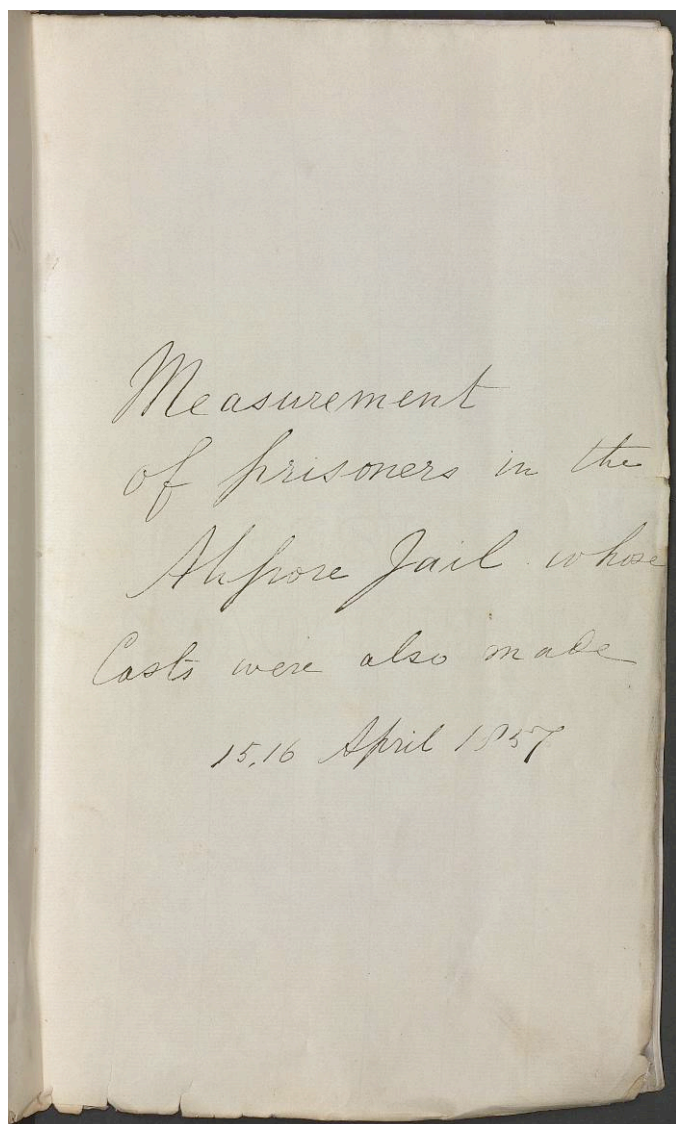 Measurement
of prisoners in the
Alipore Jail whose
Casts were also made
15.16 April 1857